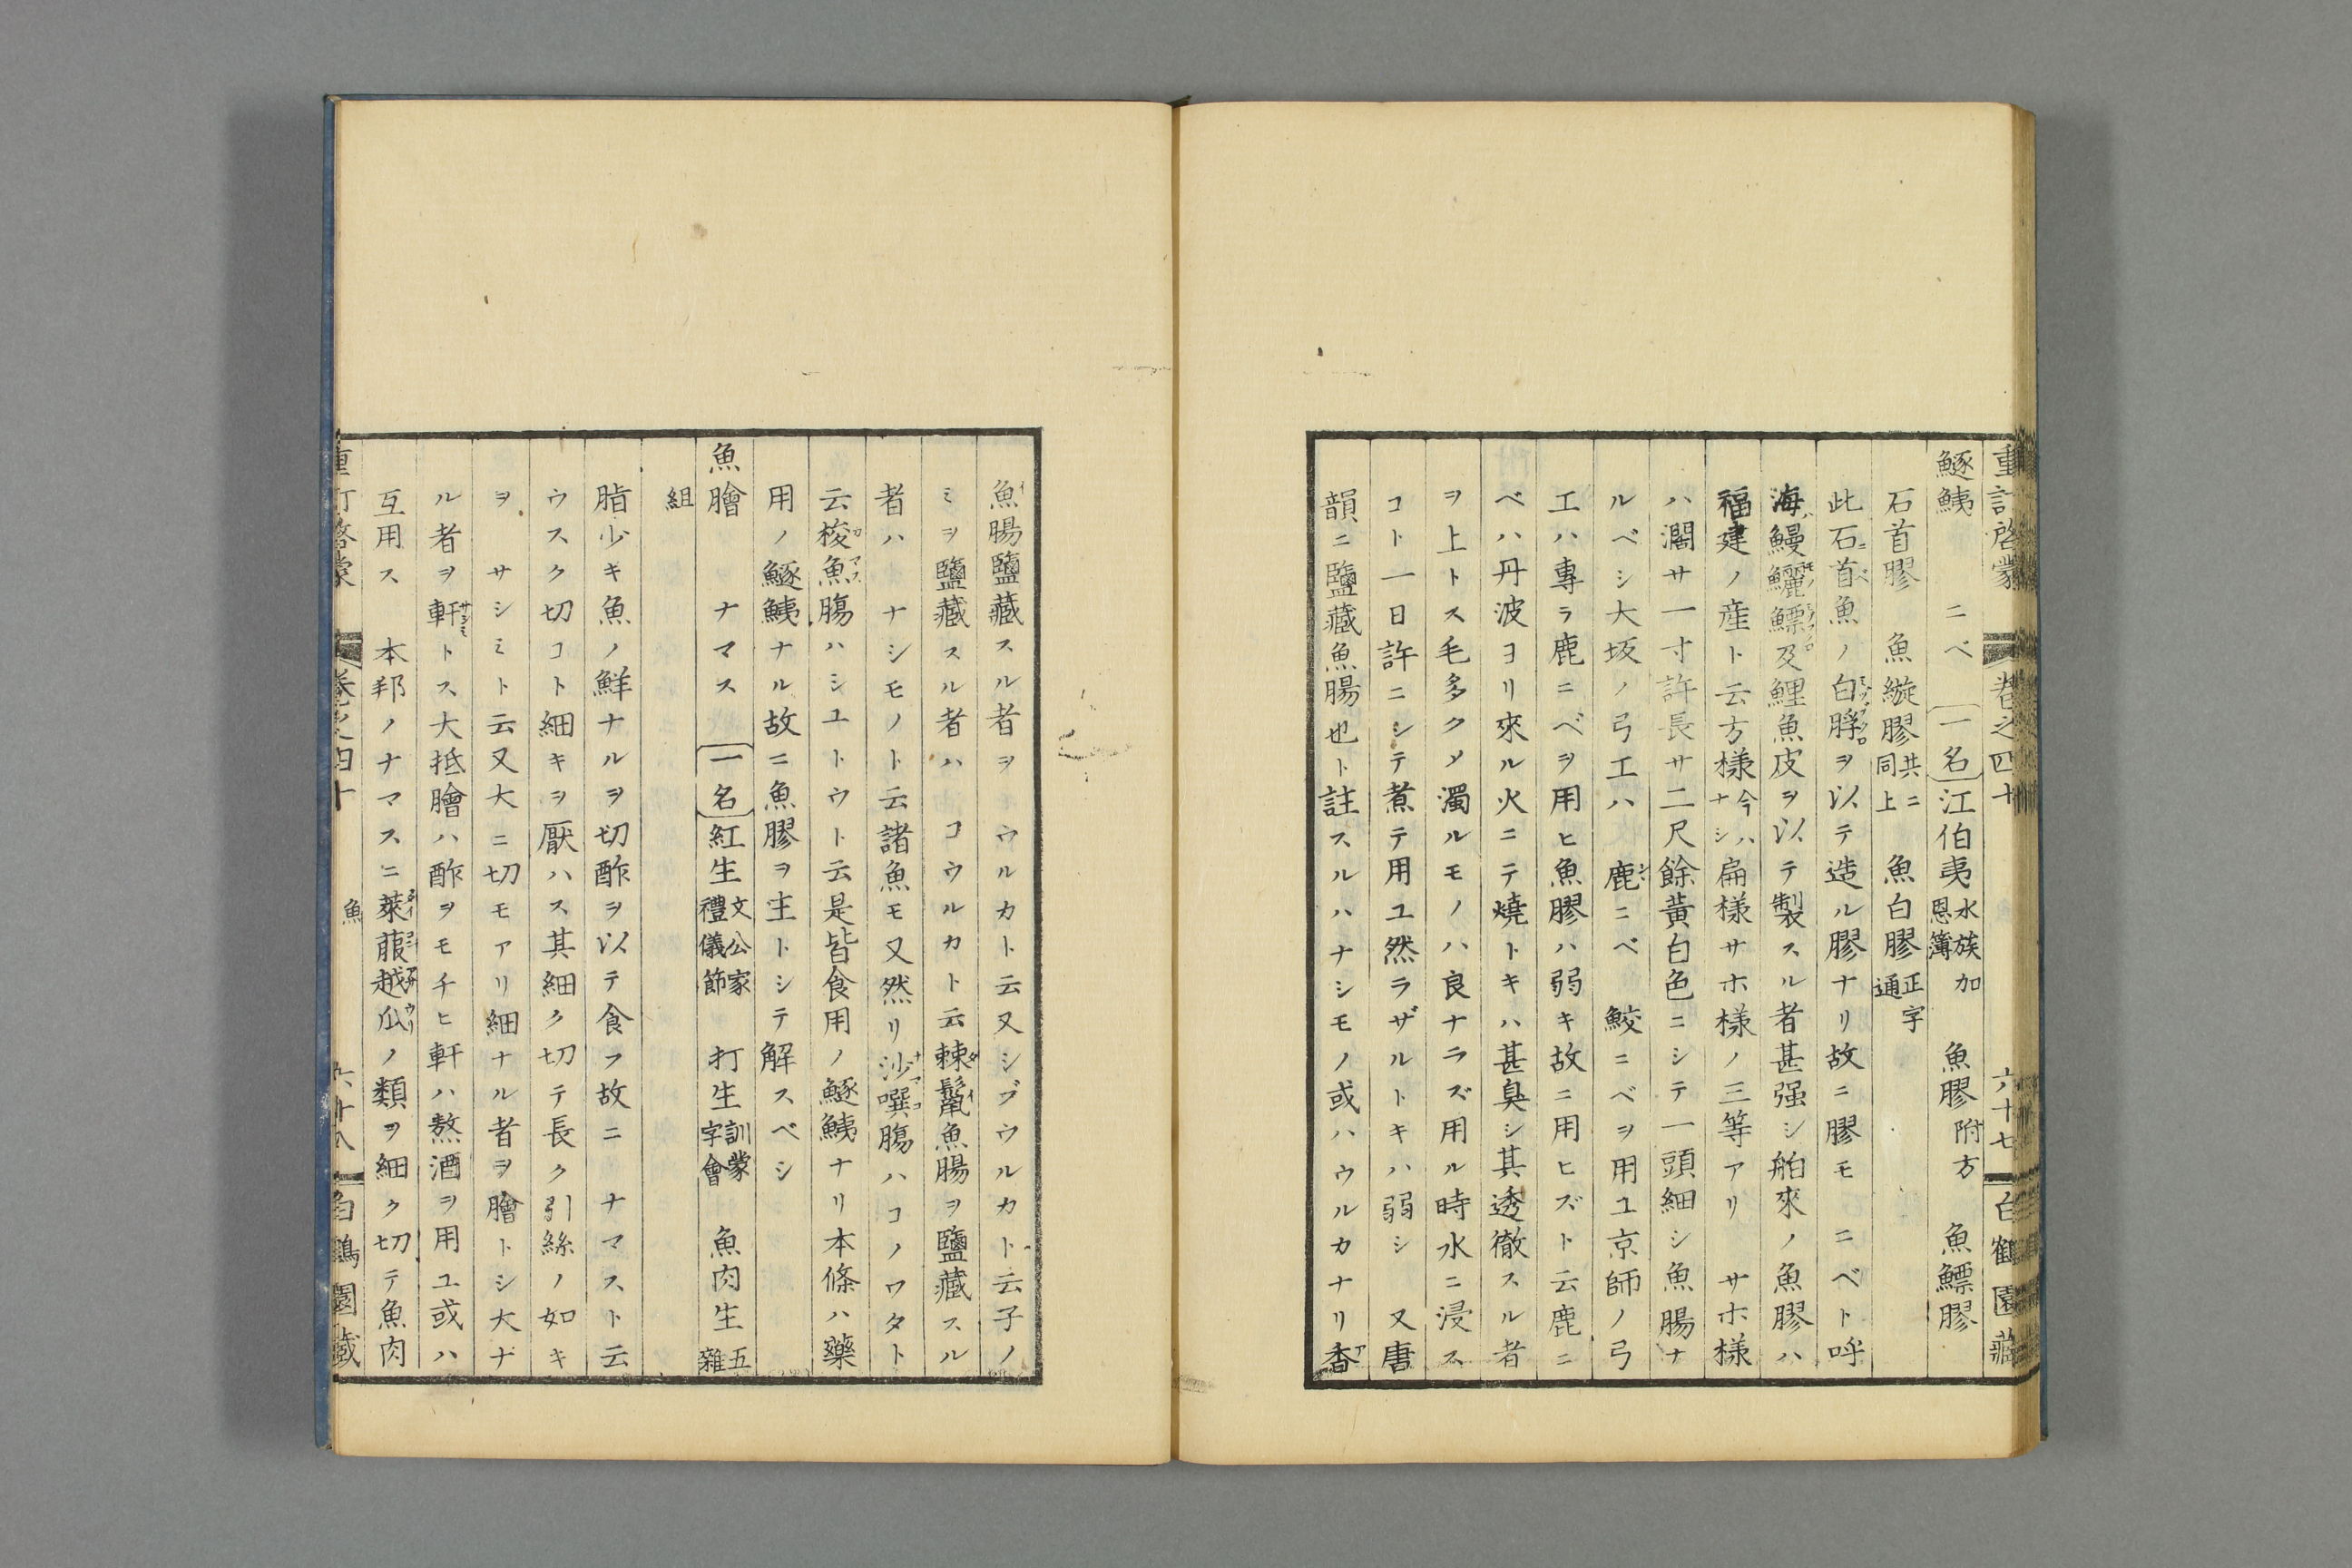 重訂啓蒙 卷之四十 六十七 白鶴園藏
鱁鮧 ニベ 一名 江伯夷 水族加恩簿 魚膠 附方 魚鰾膠
石首膠 魚縼膠 共ニ同上 魚白膠 正字通
此石首魚ノ白脬ヲ以テ造ル膠ナリ故ニ膠モ ニベト呼
海鰻鱺鰾及鯉魚皮ヲ以テ製スル者甚强シ舶來ノ魚膠ハ
福建ノ産ト云方様 今ハナシ 扁様サホ様ノ三等アリ サホ様
ハ濶サ一寸許長サ二尺餘黄白色ニシテ一頭細シ魚腸ナ
ルベシ大坂ノ弓工ハ 鹿ニベ 鮫ニベヲ用ユ京師ノ弓
工ハ專ラ鹿ニベヲ用ヒ魚膠ハ弱キ故ニ用ヒズト云鹿ニ
ベハ丹波ヨリ來ル火ニテ燒トキハ甚臭シ其透徹スル者
ヲ上トス毛多クメ濁ルモノハ良ナラズ用ル時水ニ浸ス
コト一日許ニシテ煮テ用ユ然ラザルトキハ弱シ 又唐
韻ニ鹽藏魚腸也ト註スルハナシモノ或ハウルカナリ香
魚腸鹽藏スル者ヲ ウルカト云又シブウルカト云子ノ
ミヲ鹽藏スル者ハ コウルカト云棘鬣魚腸ヲ鹽藏スル
者ハ ナシモノト云諸魚モ又然リ沙噀膓ハコノワタト
云梭魚膓ハシユトウト云是皆食用ノ鱁鮧ナリ本條ハ藥
用ノ鱁鮧ナル故ニ魚膠ヲ主トシテ解スベシ
魚膾 ナマス 一名 紅生 文公家禮儀節 打生 訓蒙字會 魚肉生 五雜
組
脂少キ魚ノ鮮ナルヲ切酢ヲ以テ食フ故ニ ナマスト云
ウスク切コト細キヲ厭ハス其細ク切テ長ク引絲ノ如キ
ヲ サシミト云又大ニ切モアリ細ナル者ヲ膾トシ大ナ
ル者ヲ軒トス大抵膾ハ酢ヲモチヒ軒ハ熬酒ヲ用ユ或ハ
互用ス 本邦ノナマスニ萊菔越瓜ノ類ヲ細ク切テ魚肉
重訂啓蒙 卷之四十 魚 六十八 白鶴園藏